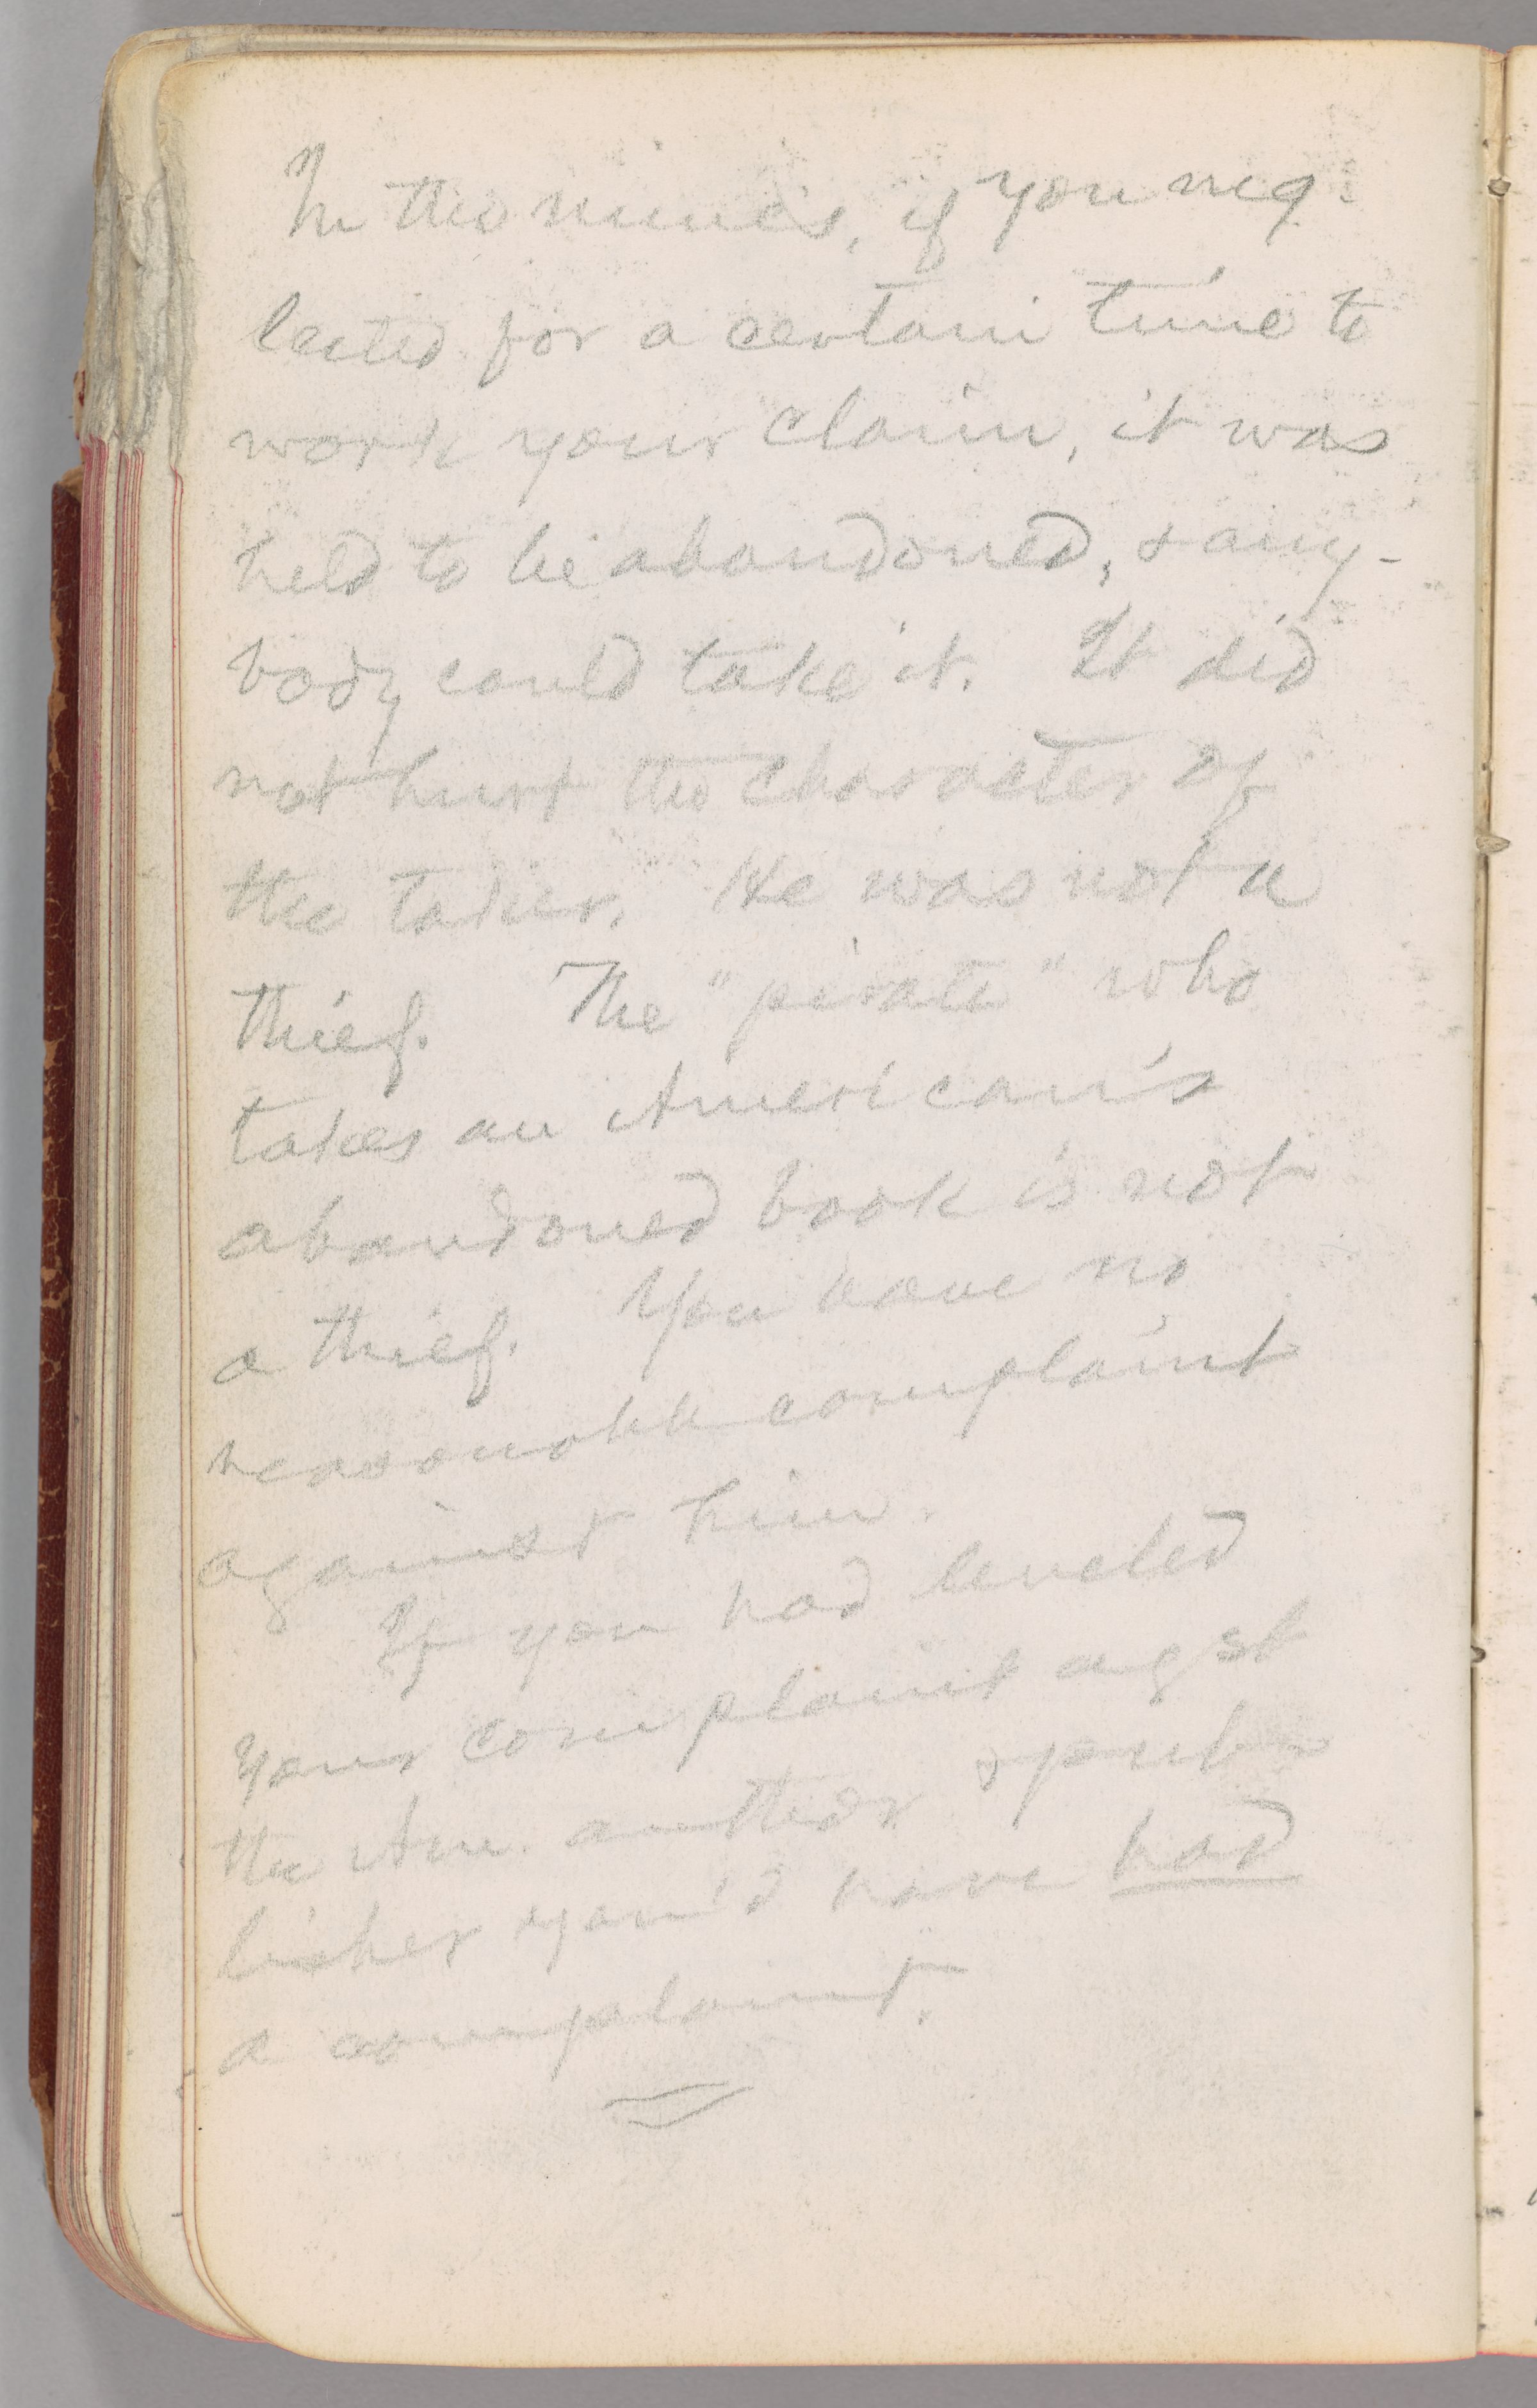 In the mines, if you neg-
lected for a certain time to
work your claim, it was
held to be abandoned, & any-
body could take it. It did
not hurt the character of
the taker. He was not a
thief. The "pirate" who
takes an American's
abandoned book is not
a thief. You have no
reasonable complaint
against him.
If you had leveled
your complaint agst
the Am. author & pub-
lisher you'd have had
a complaint.